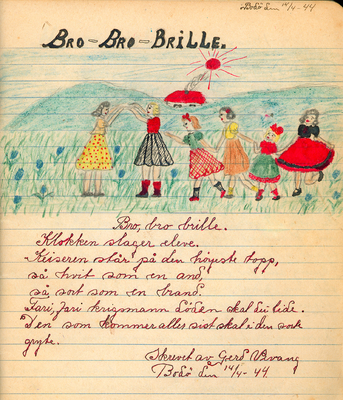 Bodö den 14/4-44
BRO-BRO-BRILLE.
Bro, bro brille.
Klokken slager eleve.
Keiseren står på den høyeste topp,
så hvit som en and,
så sort som en brand.
Fari, fari krigsmann Döden skal du lide.
Den som kommer alles sist skal i den sorte
gryte.
Skrevet av Gerd
Bodö den 14/4-44